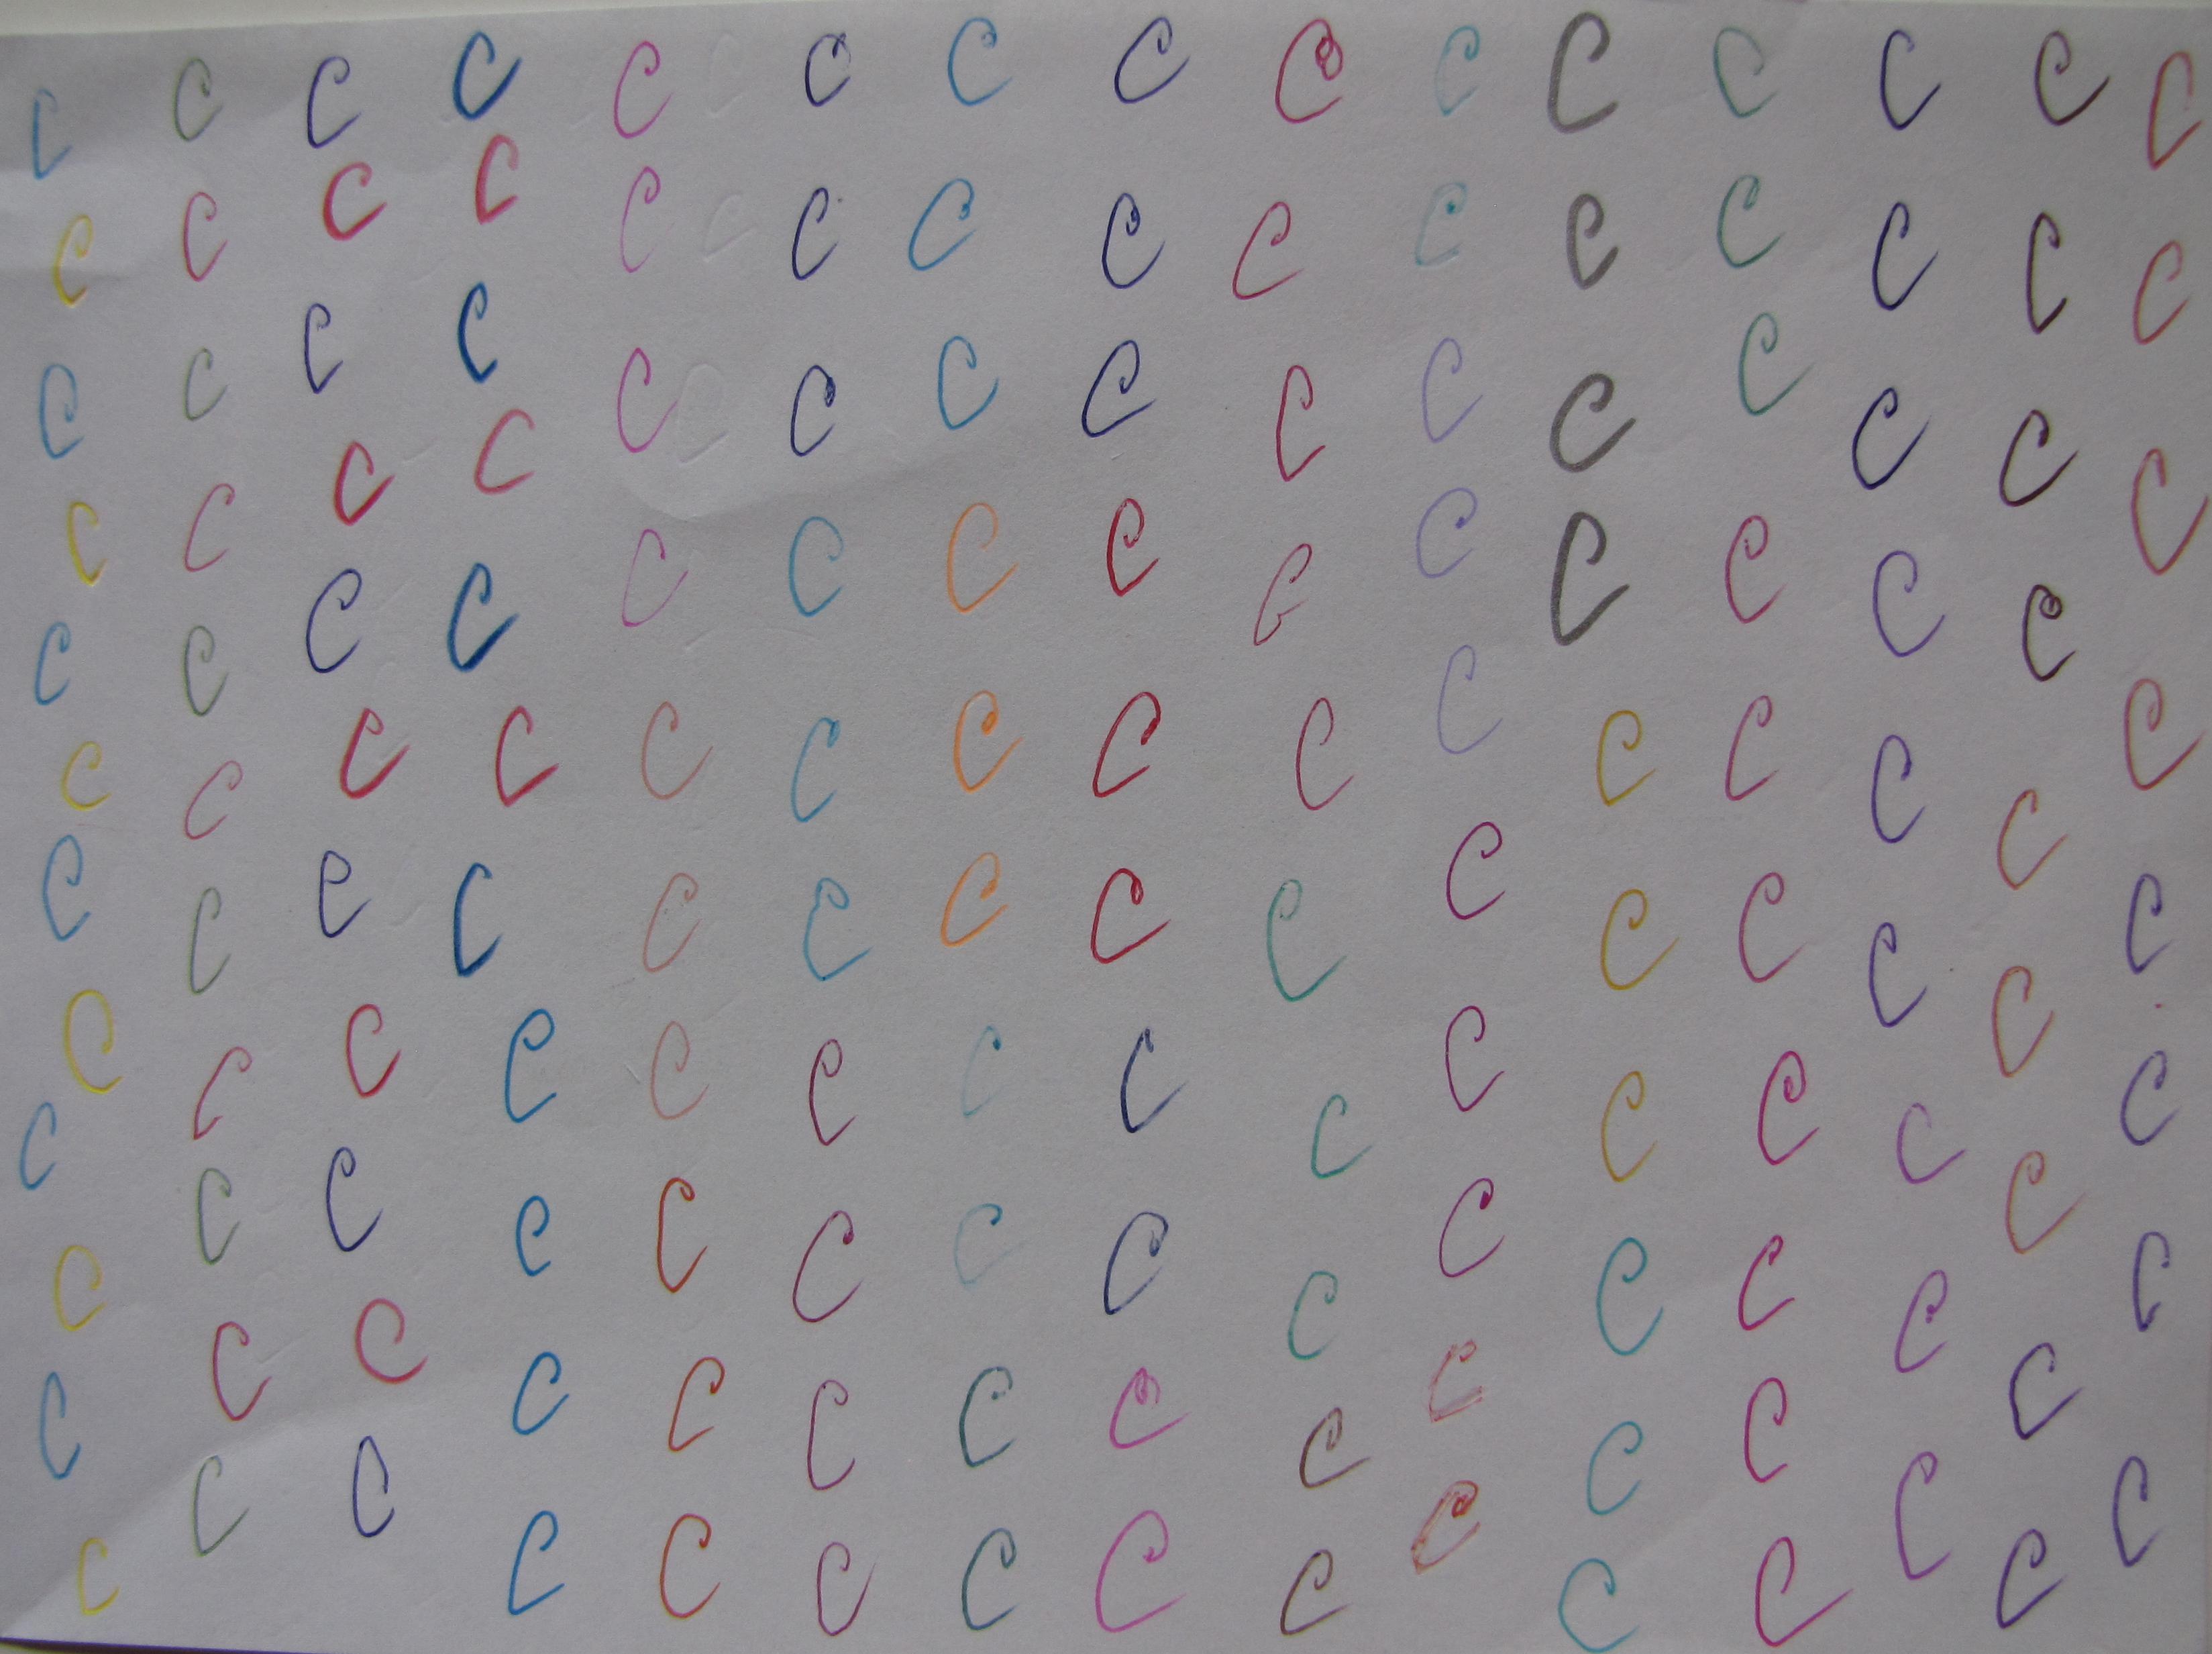 C C C C C C C C C C C C C C C C
C C C C C C C C C C C C C C C C
C C C C C C C C C C C C C C C C
C C C C C C C C C C C C C C C
C C C C C C C C C C C C C C C
C C C C C C C C C C C C C C C
C C C C C C C C C C C C C C C
C C C C C C C C C C C C C C C
C C C C C C C C C C C C C C
C C C C C C C C C C C C
C C C C
C